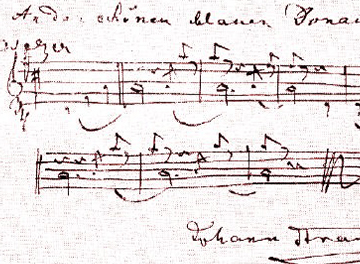 An der schönen blauen Donau
Walzer
Johann Strau